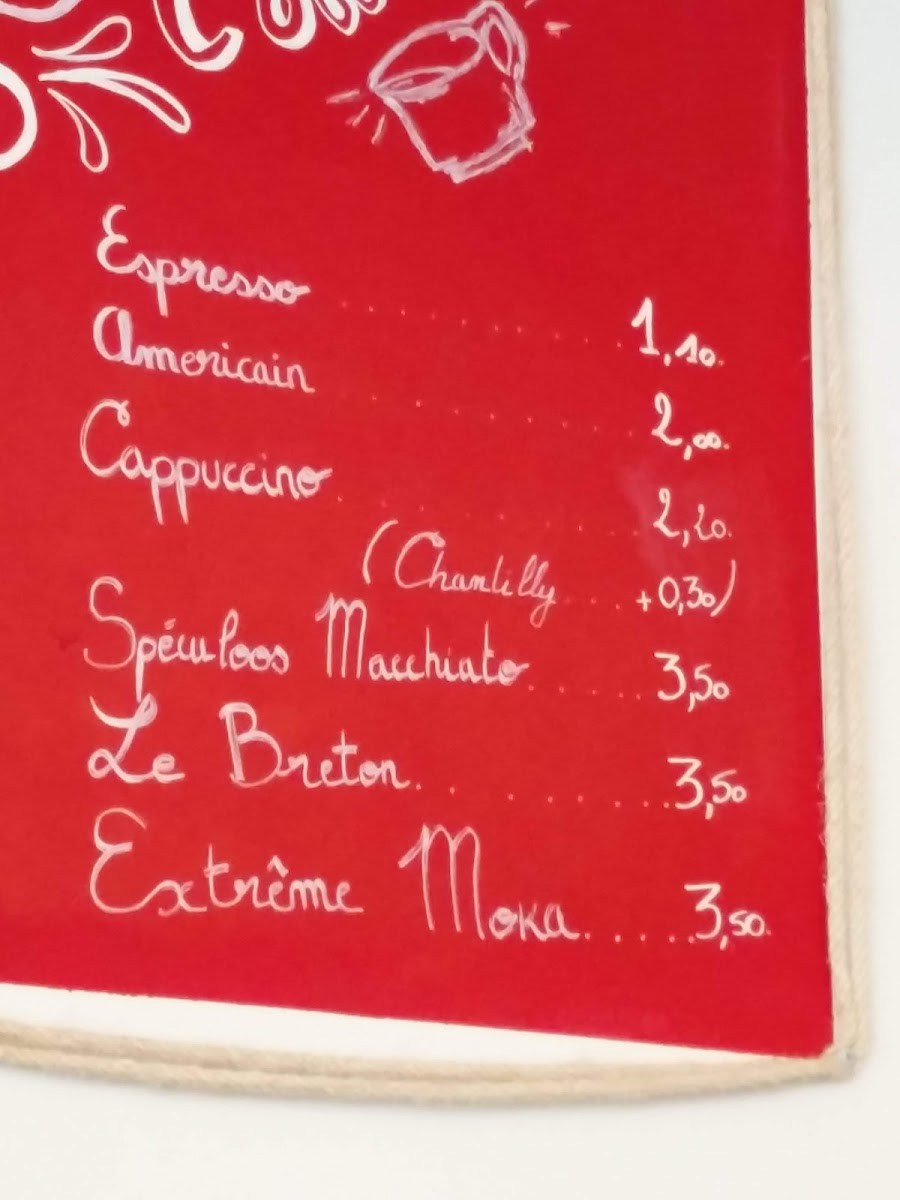 Espresso ........ 1,10.
Americain ........ 2,00.
Cappuccino ........ 2,20.
(Chantilly .... +0,30)
Spéculoos Macchiato ...... 3,50
Le Breton ........ 3,50
Extrême Moka ..... 3,50.